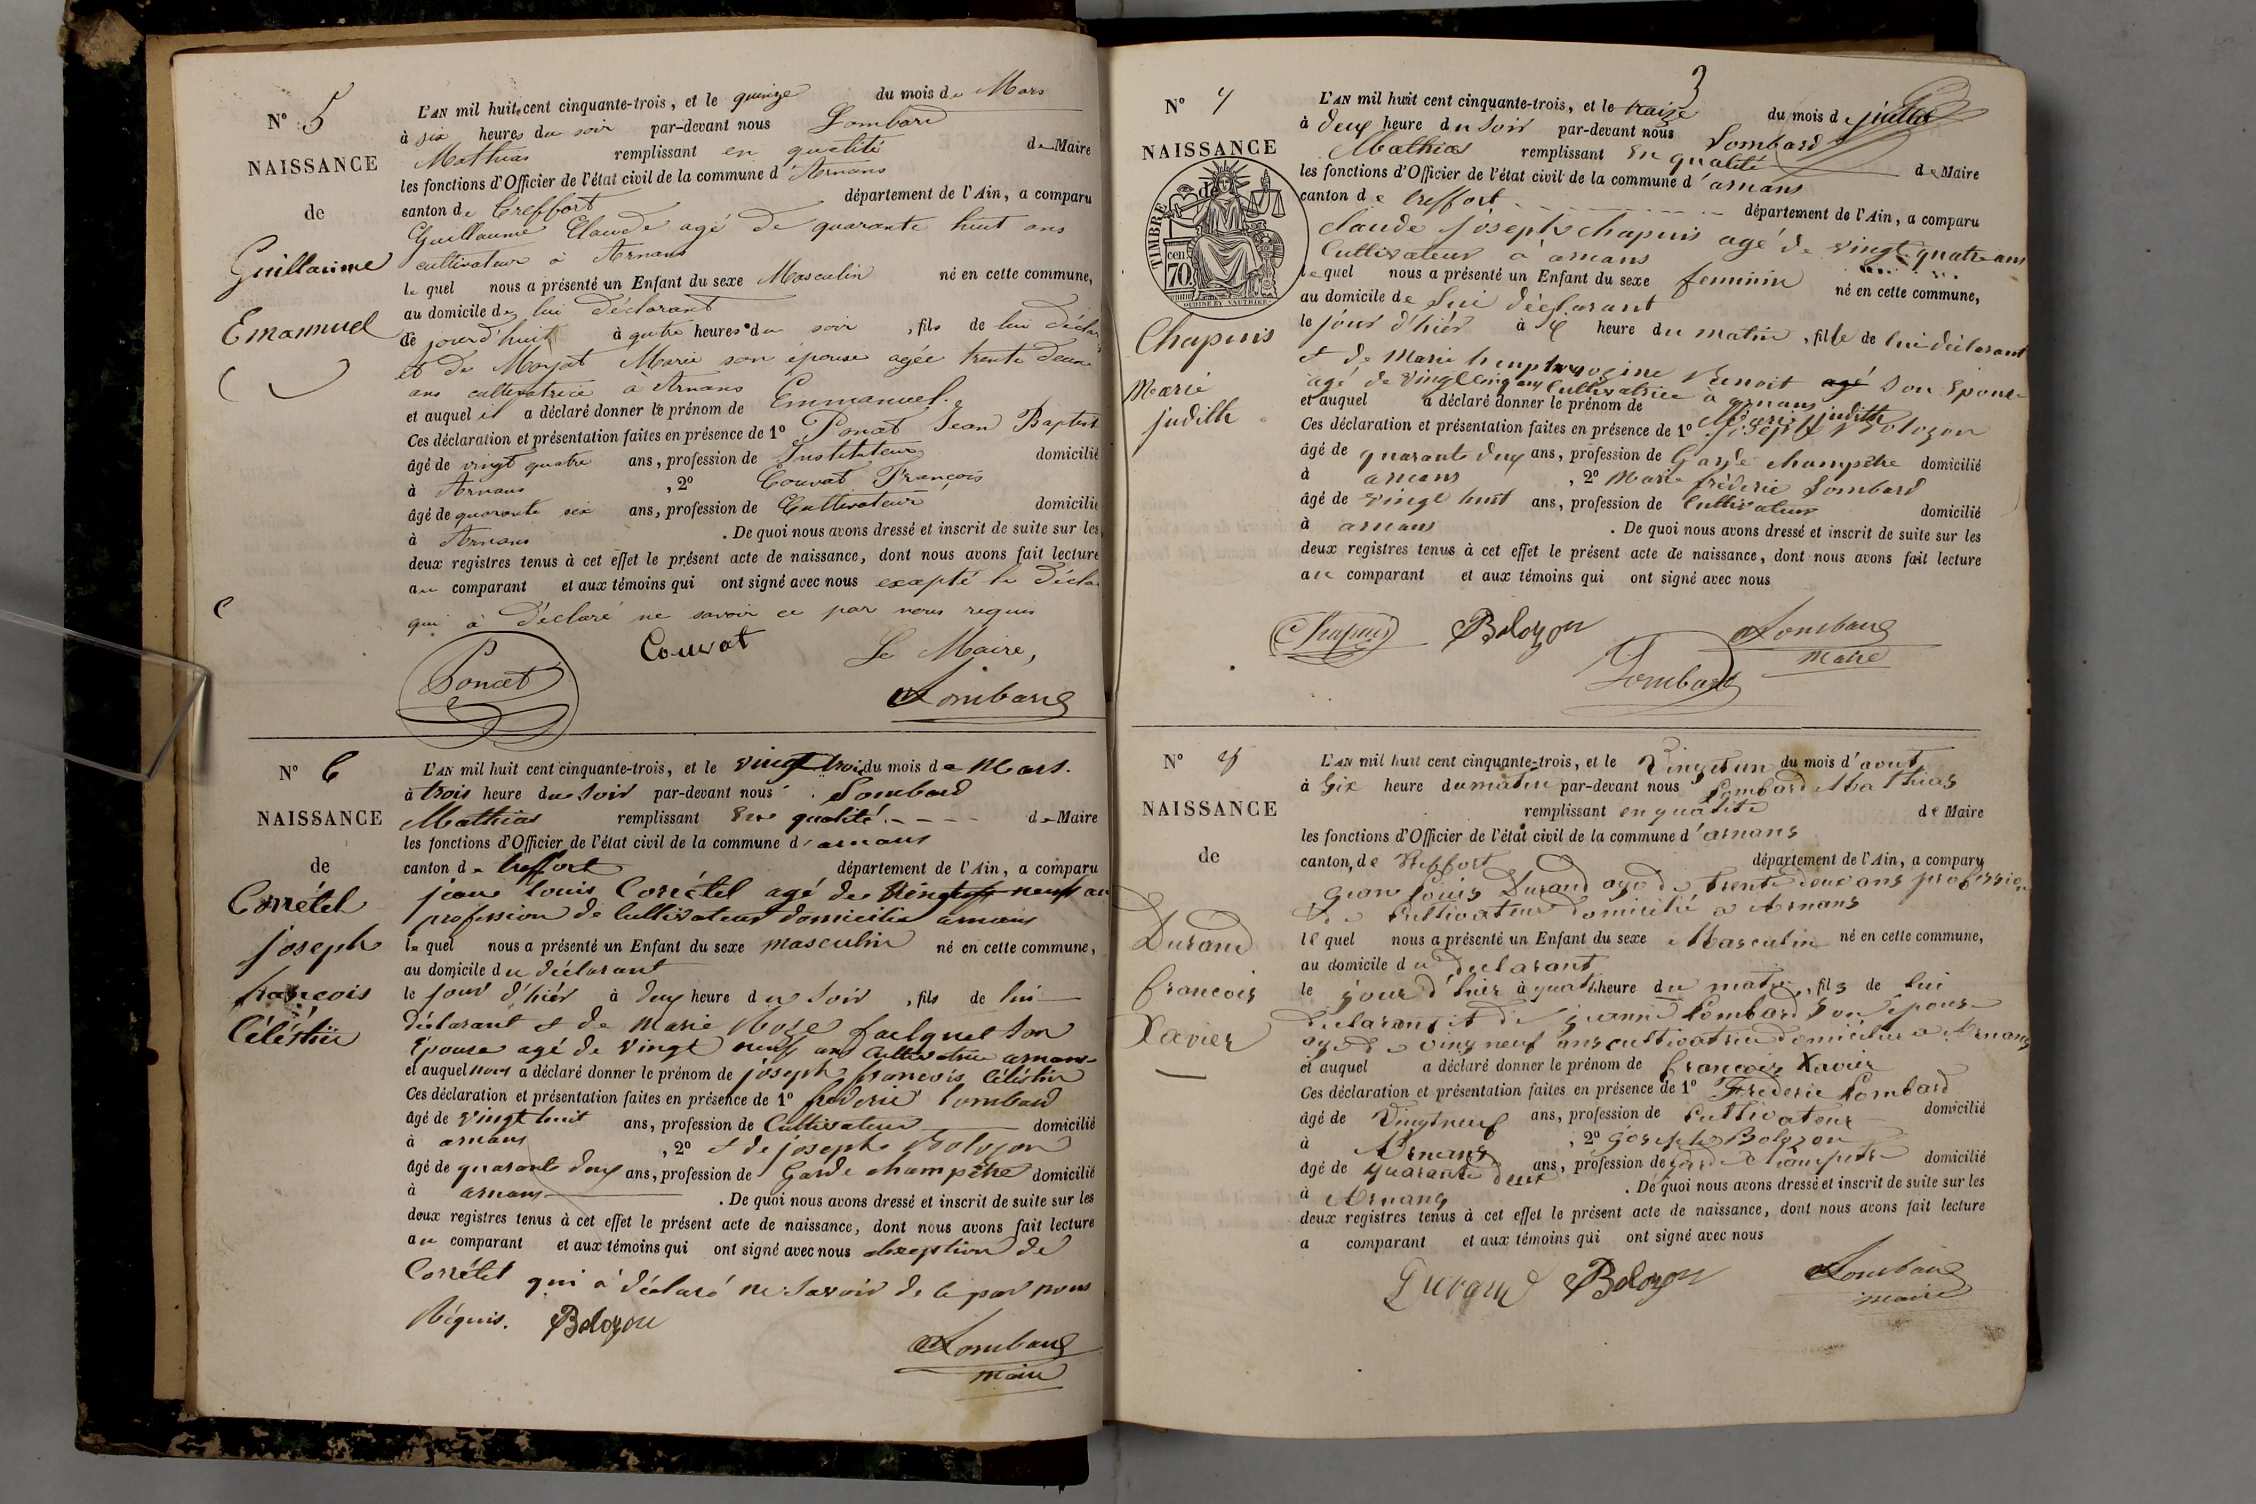 N° 5
NAISSANCE
de
Guillaume
Emannuel
L'AN mil huit cent cinquante-trois, et le quinze du mois de Mars
à six heures du soir par-devant nous Lombard
Mathias remplissant en qualité de Maire
les fonctions d'Officier de l'état civil de la commune d'Arnans
canton de Treffort département de l'Ain, a comparu
Guillaume Claude agé de quarante huit ans
cultivateur à Arnans
le quel nous a présenté un Enfant du sexe Masculin né en cette commune,
au domicile de lui déclarant
de jourd'huit à qutre heures du soir , fils de lui déclar
et de Morjat Marie son épouse agée trente deux
ans cultivatrice à Arnans
et auquel il a déclaré donner le prénom de Emmanuel.
Ces déclaration et présentation faites en présence de 1° Poncet Jean Baptist
âgé de vingt quatre ans, profession de Instituteur domicilié
à Arnans , 2° Couvat François
âgé de quarante six ans, profession de Cultivateur domicilié
à Arnans . De quoi nous avons dressé et inscrit de suite sur les
deux registres tenus à cet effet le présent acte de naissance, dont nous avons fait lecture
au comparant et aux témoins qui ont signé avec nous excepté le décla
qui à déclaré ne savoir ce par nous requis
Poncet Couvat Le Maire,
Lombard
N° 6
NAISSANCE
de
Corrétel
joseph
françois
Céléstin
L'AN mil huit cent cinquante-trois, et le vingt trois du mois de Mars.
à trois heure du soir par-devant nous Lombard
Mathias remplissant En qualité de Maire
les fonctions d'Officier de l'état civil de la commune d'arnans
canton de treffort département de l'Ain, a comparu
jean louis Corrétel agé de Vingt neuf an
profession de Cultivateur domicilié arnans
le quel nous a présenté un Enfant du sexe masculin né en cette commune,
au domicile du déclarant
le jour d'hiér à deux heure du soir , fils de lui
déclarant et de Marie Roze falquet son
Épouse agé de Vingt neuf ans Cultivatrice arnans
et auquel nous a déclaré donner le prénom de joseph françois Céléstin
Ces déclaration et présentation faites en présence de 1° frederic lombard
âgé de vingt huit ans, profession de Cultivateur domicilié
à arnans , 2° et de joseph Bolozon
âgé de quarante deux ans, profession de Garde champêtre domicilié
à arnans . De quoi nous avons dressé et inscrit de suite sur les
deux registres tenus à cet effet le présent acte de naissance, dont nous avons fait lecture
au comparant et aux témoins qui ont signé avec nous a lexeption de
Corrétel qui à déclaré ne savoir de ce par nous
Réquis. Bolozon
Lombard
maire
3
N° 7
NAISSANCE
de
TIMBRE
70 cen
Chapuis
Marie
judith
L'AN mil huit cent cinquante-trois, et le treize du mois de juillet
à deux heure du soir par-devant nous Lombard
Mathias remplissant En qualité de Maire
les fonctions d'Officier de l'état civil de la commune d'arnans
canton de treffort département de l'Ain, a comparu
Claude joseph chapuis agé de vingt quatre ans
Cultivateur à arnans
le quel nous a présenté un Enfant du sexe feminin né en cette commune,
au domicile de lui déclarant
le jour d'hiér à heure du matin , fille de lui déclarant
et de Marie Benoit agé son épouse
agé de vingt cinq ans Cultivatrice à arnans
et auquel a déclaré donner le prénom de Marie judith
Ces déclaration et présentation faites en présence de 1° joseph Bolozon
âgé de quarante deux ans, profession de Garde champêtre domicilié
à arnans , 2° Marie fréderic Lombard
âgé de vingt huit ans, profession de Cultivateur domicilié
à arnans . De quoi nous avons dressé et inscrit de suite sur les
deux registres tenus à cet effet le présent acte de naissance, dont nous avons fait lecture
au comparant et aux témoins qui ont signé avec nous
Chapuis Bolozon Lombard
maire
Lombard
N°
NAISSANCE
de
Durand
francois
Xavier
L'AN mil huit cent cinquante-trois, et le Vingt un du mois d'avut
à Six heure du matin par-devant nous Lombard Mathias
remplissant en qualité de Maire
les fonctions d'Officier de l'état civil de la commune d'arnans
canton de treffort département de l'Ain, a comparu
Jean Louis Durand age de trente deux ans profession
de Cultivateur domicilié a Arnans
le quel nous a présenté un Enfant du sexe Masculin né en cette commune,
au domicile du declarant
le jour d'hier à quatre heure du matin , fils de lui
declarant et de jeanne Lombard son épouse
age de ving neuf ans cultivatrice domiciliee a Arnans
et auquel a déclaré donner le prénom de francois Xavier
Ces déclaration et présentation faites en présence de 1° Frederic Lombard
âgé de Vingt neuf ans, profession de Cultivateur domicilié
à Arnans , 2° joseph Bolozon
âgé de quarante deux ans, profession de garde champetre domicilié
à Arnans . De quoi nous avons dressé et inscrit de suite sur les
deux registres tenus à cet effet le présent acte de naissance, dont nous avons fait lecture
a comparant et aux témoins qui ont signé avec nous
Bolozon Lombard
maire